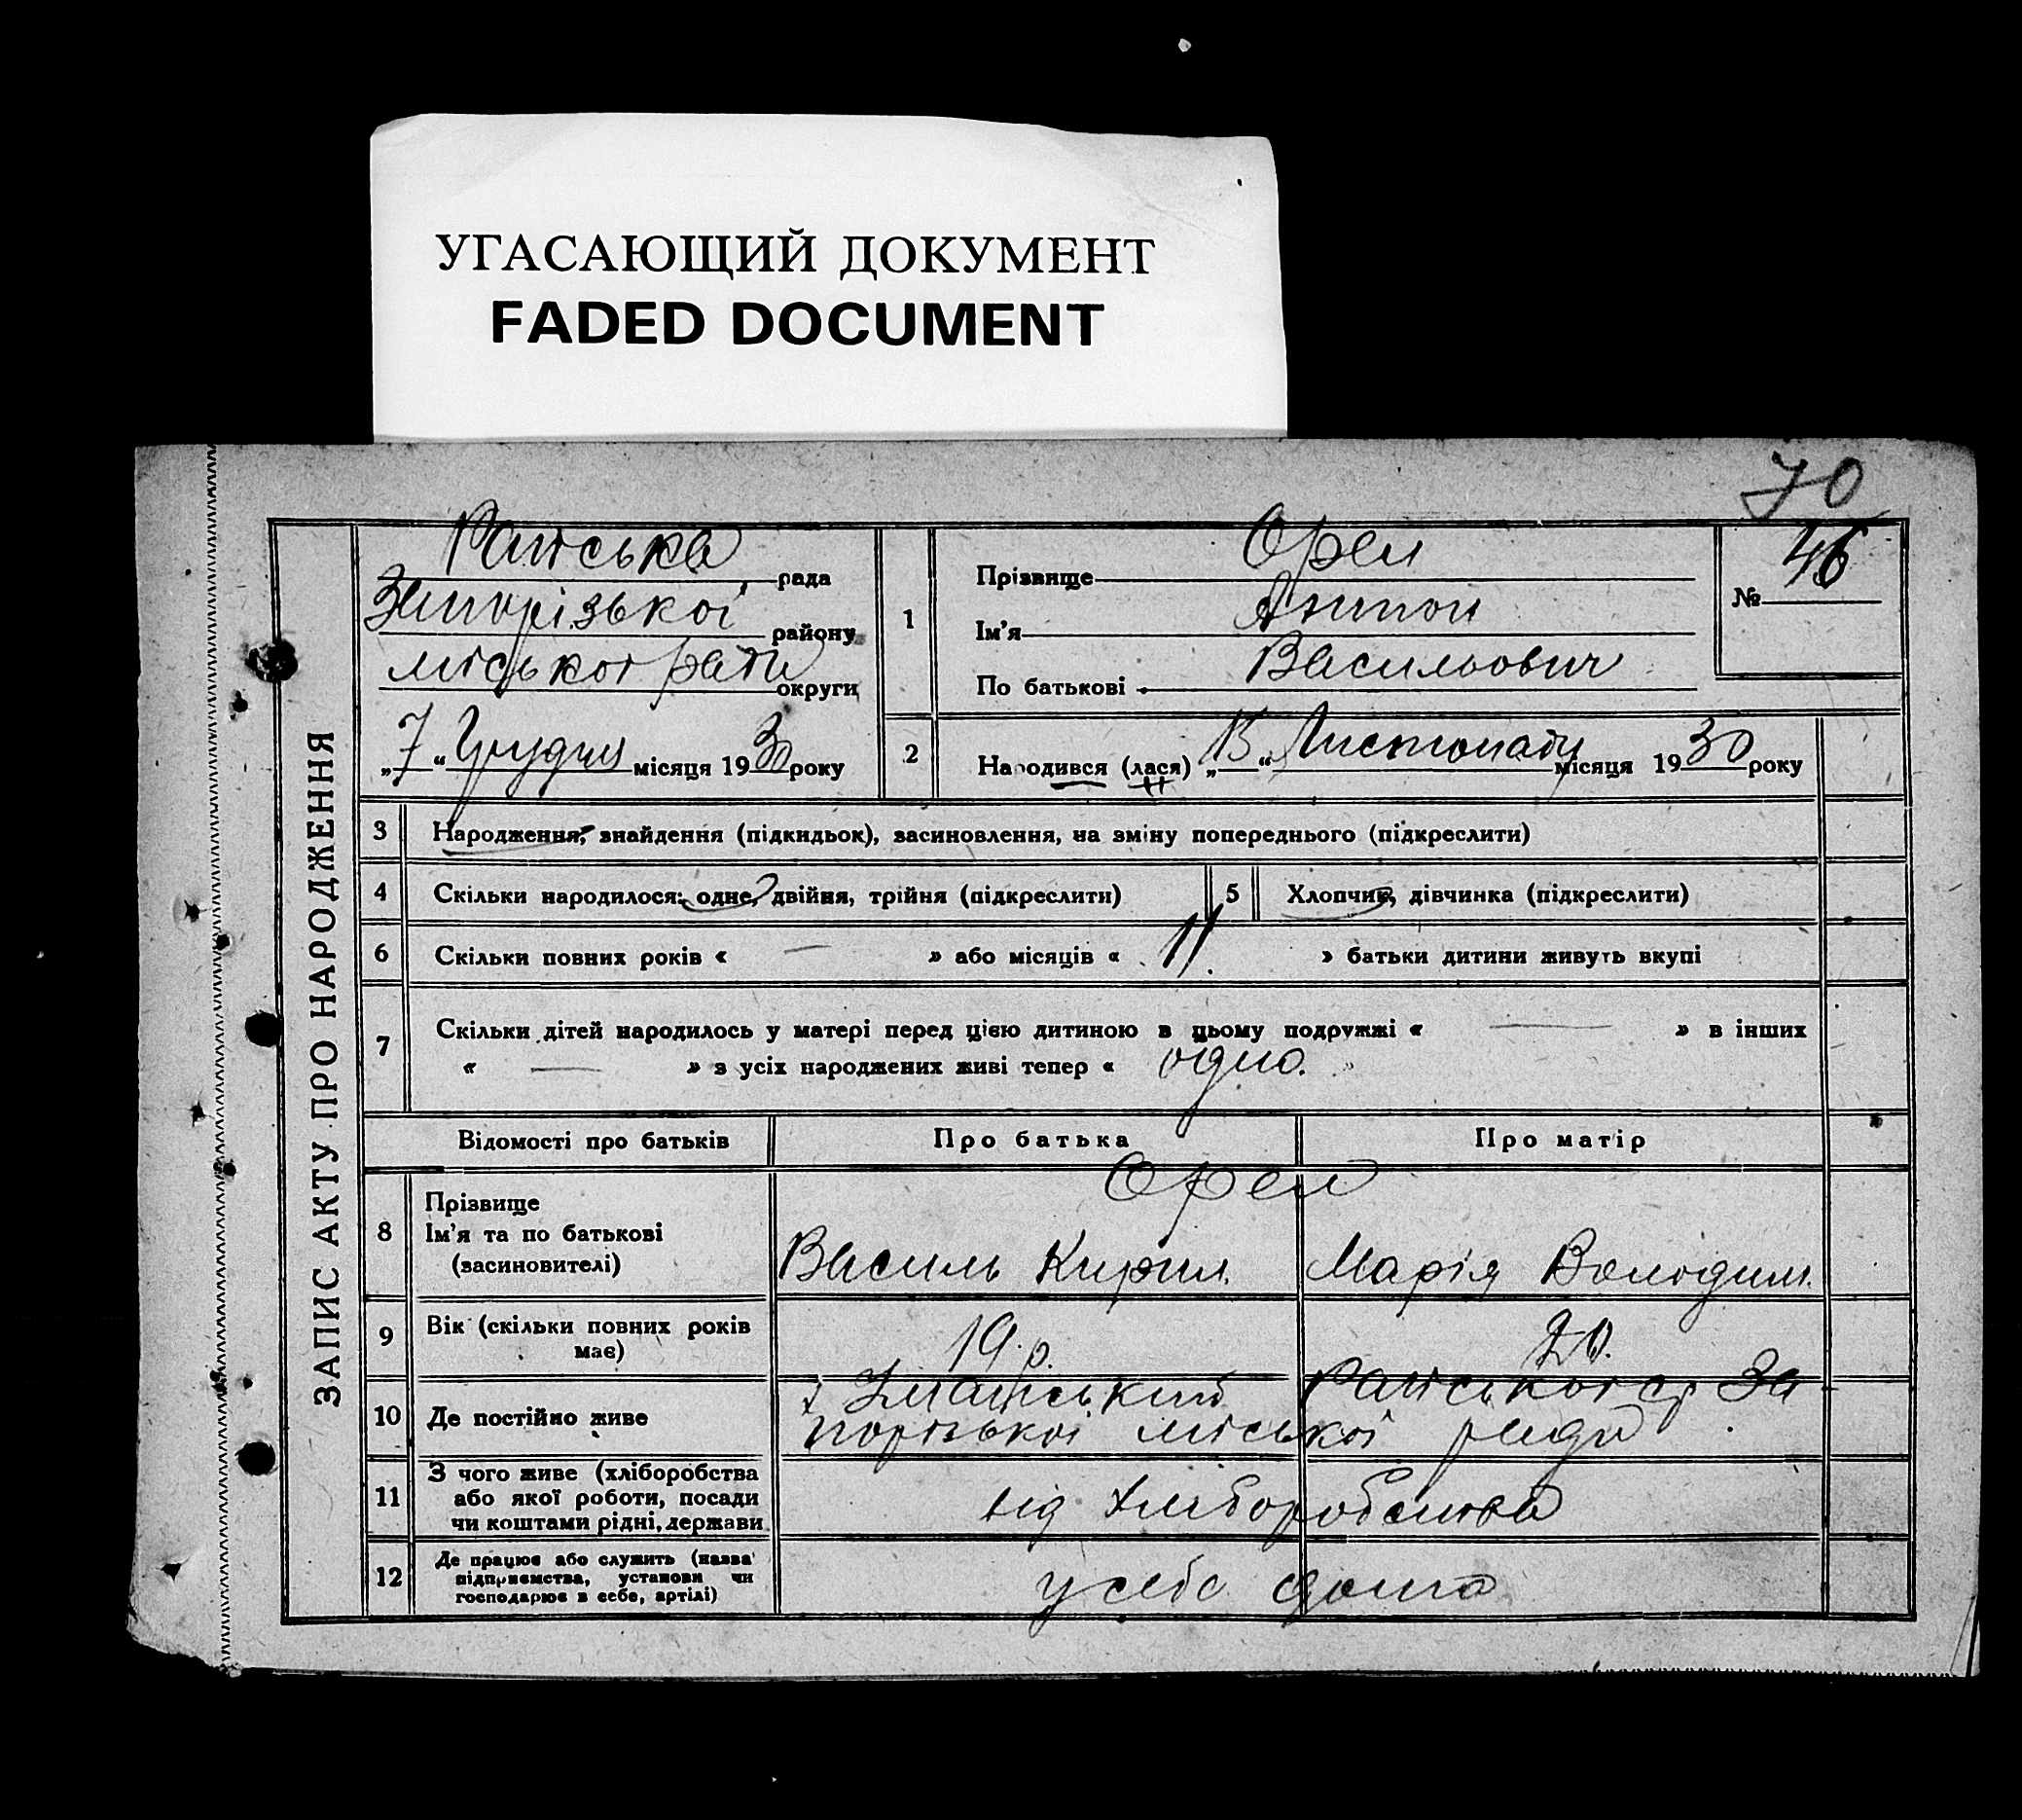 УГАСАЮЩИЙ ДОКУМЕНТ
FADED DOCUMENT
70
ЗАПИС АКТУ ПРО НАРОДЖЕННЯ
рада
Запорізької району
міської ради округи
„7“ Грудня місяця 1930 року
1
Прізвище Орел
Ім'я Антон
По батькові Васильович
№ 46
2
Народився (лася) „15“ Листопаду місяця 1930 року
3 Народження, знайдення (підкидьок), засиновлення, на зміну попереднього (підкреслити)
4 Скільки народилося: одне, двійня, трійня (підкреслити)
5 Хлопчик, дівчинка (підкреслити)
6 Скільки повних років « — » або місяців « 11. » батьки дитини живуть вкупі
7 Скільки дітей народилось у матері перед цією дитиною в цьому подружжі « — » в інших
« — » з усіх народжених живі тепер « одно. »
Відомості про батьків Про батька Про матір
8 Прізвище
Ім'я та по батькові
(засиновителі)
Орел
Василь Кирил. Марія Володим.
9 Вік (скільки повних років
має)
19 р. 20.
10 Де постійно живе
х За
порізької міської ради
11 З чого живе (хліборобства
або якої роботи, посади
чи коштами рідні, держави
від хліборобства
12 Де працює або служить (назва
підприємства, установи чи
господарює в себе, артілі)
у себе дома